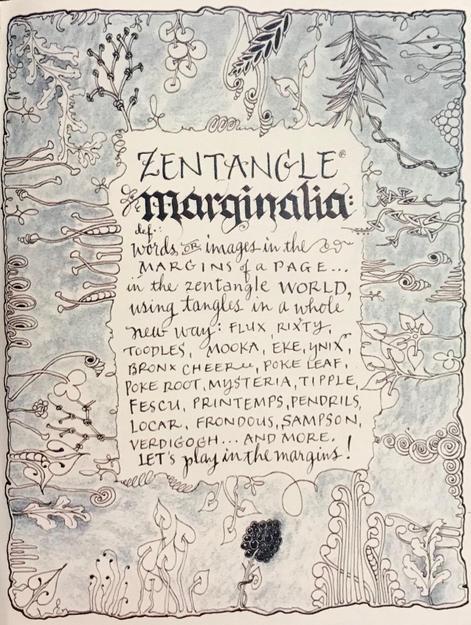 ZENTANGLE®
marginalia:
def.:
words OR images in the
MARGINS of a PAGE...
in the zentangle WORLD,
using tangles in a whole
new way: FLUX, RIXTY,
TOODLES, MOOKA, EKE, YNIX,
BRONX CHEER, POKE LEAF,
POKE ROOT, MYSTERIA, TIPPLE,
FESCU, PRINTEMPS, PENDRILS,
LOCAR, FRONDOUS, SAMPSON,
VERDIGOGH... AND MORE.
LET'S play in the margins!